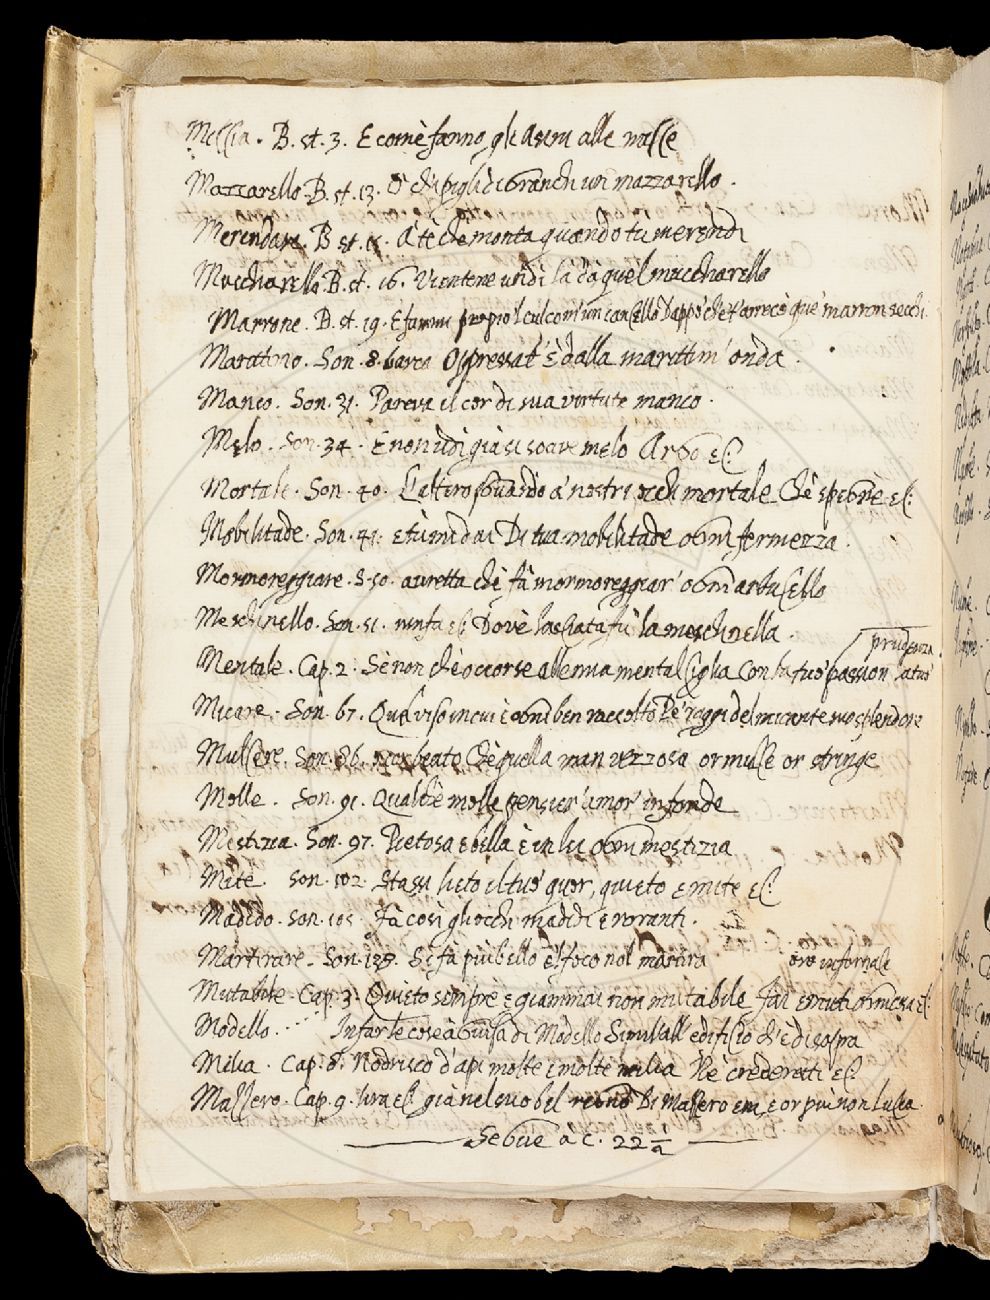 Messia. B. st. 3. E com'è fanno gli Asini alle masse
Mazzarello. B. st. 13. O' ch'i pigli di branchi un mazzarello.
Merendare. B st. 15. A' te che monta quando tu merendi
Mucchiarello. B. st. 16. Vientene undi là da quel mucchiarello
Marrone. B. st. 19. E fammi propio'l cul com'un canello Dappo' che t'arrecò que' marron secchi.
Marattimo. Son. 8. barca Oppressat' È dalla marittim' onda.
Manco. Son. 31. Pareva il cor di sua virtute manco.
Melo. Son. 34. E non udì già sì soave melo Arbo &c.
Mortale. Son. 40. L'altiero sguardo a' nostri occhi mortale Ch'è &c:
Mobilitade. Son. 41. E tù mi dai Di tua mobilitade ogni fermezza.
Mormoreggiare. S. 50. auretta chè fà mormoreggiar' ogni arbuscello
Meschinello. Son. 51. ninfa &c: Dov'è lasciata fù la meschinella.
prudenza
Mentale. Cap. 2. Sè non chè occorse alle mia mental figlia Con la tuo' passion
Micare. Son. 67. Quel viso in cui è ogni ben raccolto De' raggi del micante suo splendore
Mulcere. Son. 86. beato Chè quella man vezzosa or mulce or stringe
Molle. Son. 91. Qualch'è molle pensier' amor' infonde
Mestizia. Son. 97. Pietosa e bella è in lei ogni mestizia
Mite. Son. 102. Stassi lieto il tuo' cuor, quieto e mite &c.
Madido. Son. 105. Fà così gli occhi madidi e roranti.
Martirare. Son. 128. Si fà più bello e'l foco nol martira
oro infornale
Mutabile. Cap. 3. Quieto sempre e giammai non mutabile Fai e muti &c:
Modello..... In far le cose à guisa di Modello Simil all' edificio ch'è di sopra
Milia. Cap. 8. Nodrisco d'api molte e molte milia Nè crederesti &c:
Massero. Cap. 9. &c già nel suo bel Di Massero e or più non
Segue a c. 22